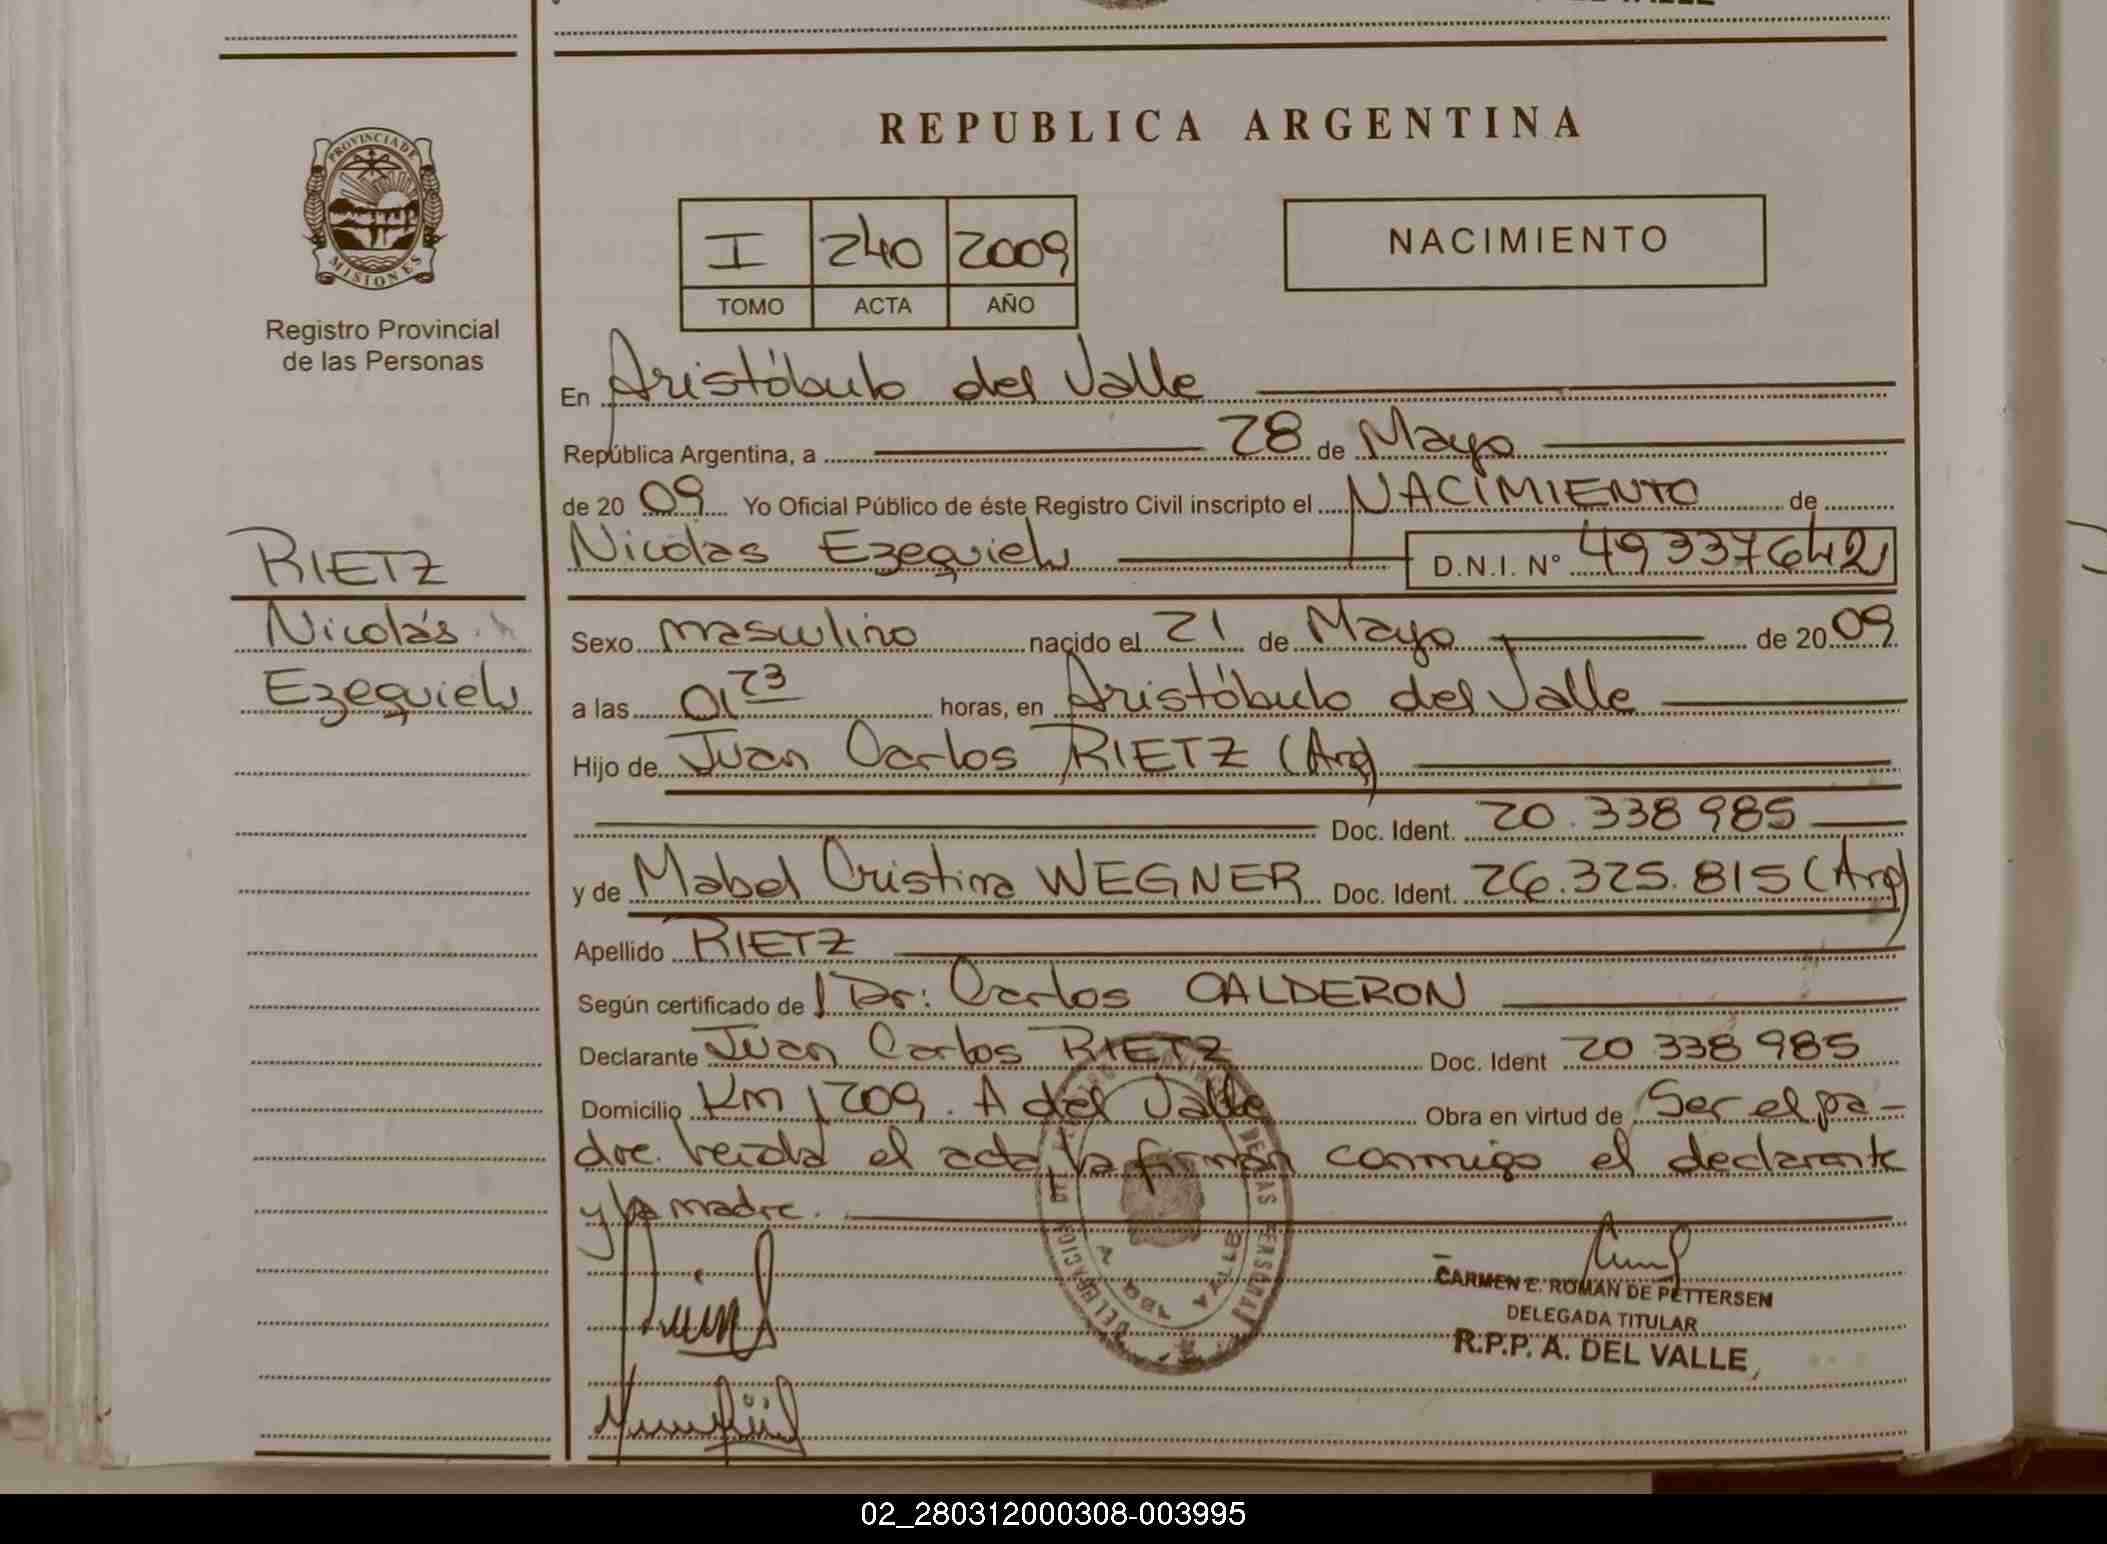 REPUBLICA ARGENTINA
PROVINCIA DE
MISIONES
Registro Provincial
de las Personas
I 240 2009
TOMO ACTA AÑO
NACIMIENTO
En Aristóbulo del Valle
República Argentina, a 28 de Mayo
de 20 09 Yo Oficial Público de éste Registro Civil inscripto el NACIMIENTO de
RIETZ
Nicolás
Ezequiel
Nicolas Ezequiel D.N.I. N° 49337642
Sexo masculino nacido el 21 de Mayo de 20 09
a las 01 23 horas, en Aristóbulo del Valle
Hijo de Juan Carlos RIETZ (Arg)
Doc. Ident. 20.338985
y de Mabel Cristina WEGNER Doc. Ident. 26.325.815 (Arg)
Apellido RIETZ
Según certificado de Dr: Carlos CALDERON
Declarante Juan Carlos RIETZ Doc. Ident 20 338 985
Domicilio Km 1209. A del Valle Obra en virtud de Ser el pa-
dre. leída el acta, la firman conmigo el declarante
y la madre.
CARMEN E. ROMAN DE PETTERSEN
DELEGADA TITULAR
R.P.P. A. DEL VALLE
02_280312000308-003995